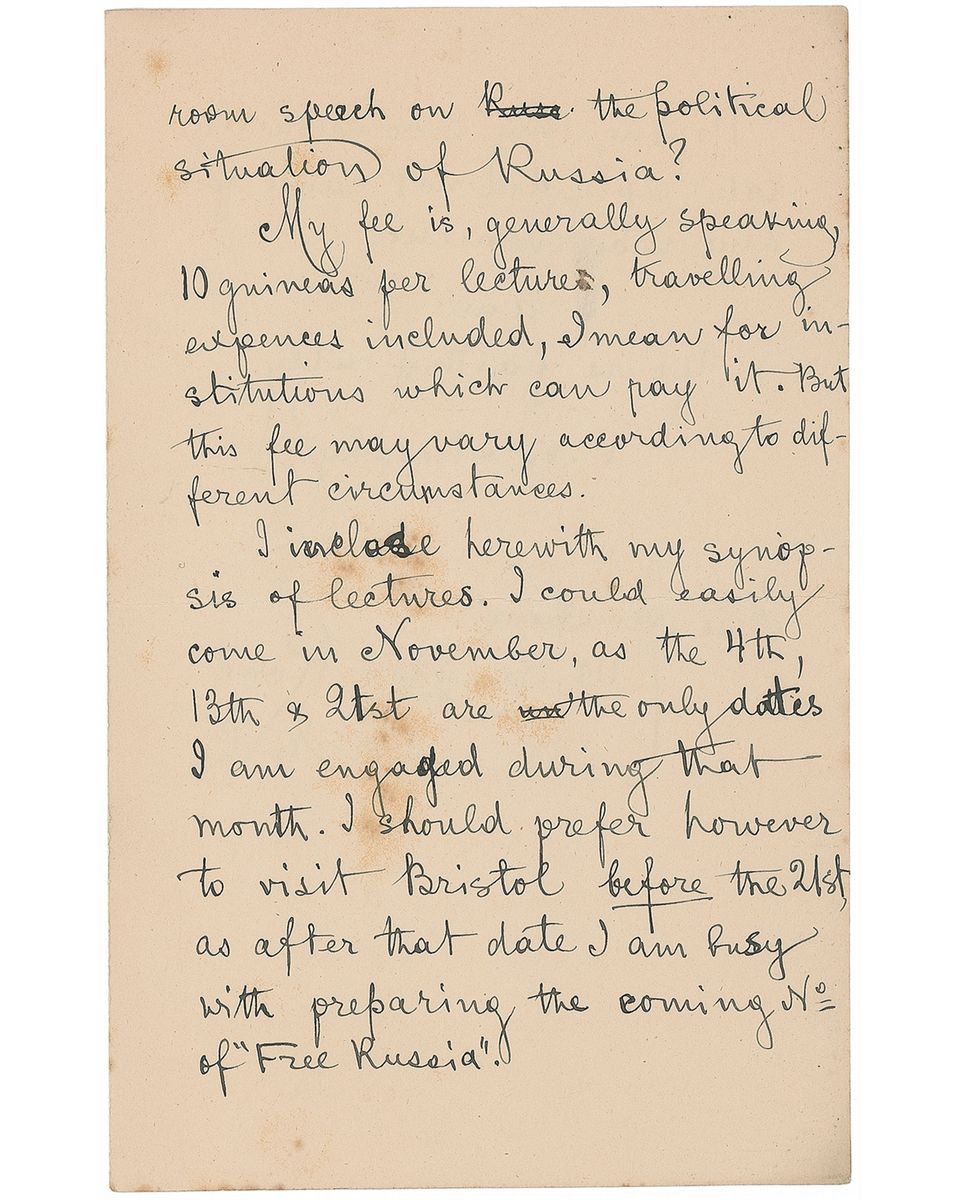 room speech on Russ the political
situation of Russia?
My fee is, generally speaking,
10 guineas per lecture, travelling
expences included, I mean for in-
stitutions which can pay it. But
this fee may vary according to dif-
ferent circumstances.
I inclose herewith my synop-
sis of lectures. I could easily
come in November, as the 4th,
13th & 21st are the only dates
I am engaged during that
month. I should prefer however
to visit Bristol before the 21st,
as after that date I am busy
with preparing the coming No
of "Free Russia".